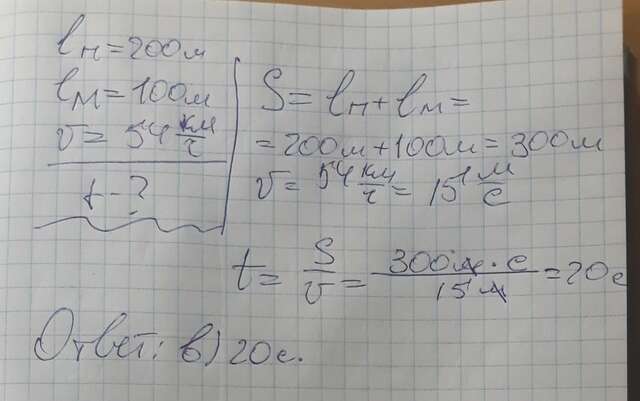 lп = 200м
lм = 100м
v = 54 км/ч
t - ?
S = lп + lм =
= 200м + 100м = 300м
v = 54 км/ч = 15 м/с
t = S/v = 300м · с / 15 м = 20с
Ответ: в) 20с.